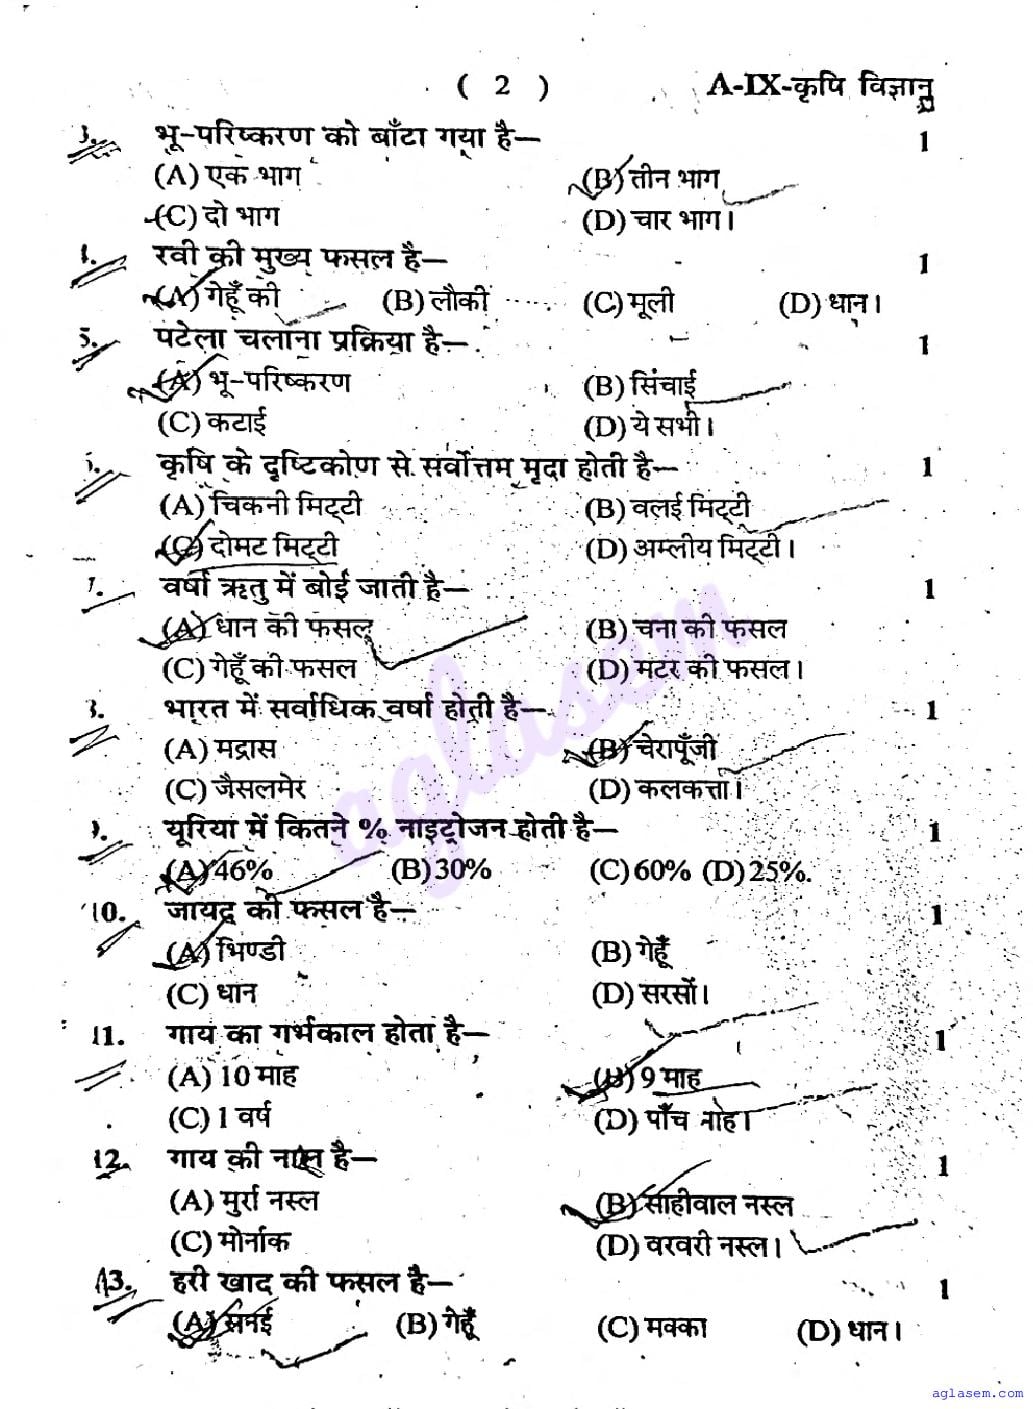 ( 2 ) A-IX-कृषि विज्ञान
3. भू-परिष्करण को बाँटा गया है— 1
(A) एक भाग (B) तीन भाग
(C) दो भाग (D) चार भाग।
4. रवी की मुख्य फसल है— 1
(A) गेहूँ की (B) लौकी (C) मूली (D) धान।
5. पटेला चलाना प्रक्रिया है— 1
(A) भू-परिष्करण (B) सिंचाई
(C) कटाई (D) ये सभी।
कृषि के दृष्टिकोण से सर्वोत्तम मृदा होती है— 1
(A) चिकनी मिट्टी (B) वलई मिट्टी
(C) दोमट मिट्टी (D) अम्लीय मिट्टी।
7. वर्षा ऋतु में बोई जाती है— 1
(A) धान की फसल (B) चना की फसल
(C) गेहूँ की फसल (D) मटर की फसल।
भारत में सर्वाधिक वर्षा होती है— 1
(A) मद्रास (B) चेरापूँजी
(C) जैसलमेर (D) कलकत्ता।
9. यूरिया में कितने % नाइट्रोजन होती है— 1
(A) 46% (B) 30% (C) 60% (D) 25%.
10. जायद की फसल है— 1
(A) भिण्डी (B) गेहूँ
(C) धान (D) सरसों।
11. गाय का गर्भकाल होता है— 1
(A) 10 माह (B) 9 माह
(C) 1 वर्ष (D) पाँच
12. गाय की है— 1
(A) मुर्रा नस्ल (B) साहीवाल नस्ल
(C) मोर्नाक (D) वरवरी नस्ल।
13. हरी खाद की फसल है— 1
(A) सनई (B) गेहूँ (C) मक्का (D) धान।
aglasem
aglasem.com